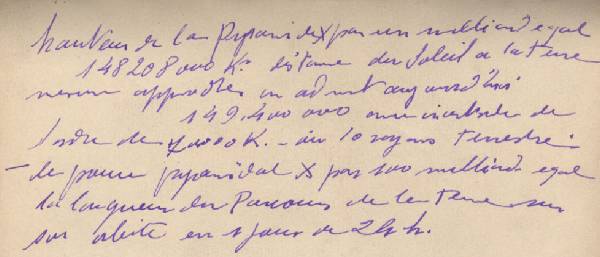 hauteur de la Pyramide X par un milliard egal
148208000 K. distance du Soleil a la terre
mesure approchée on admet aujourd'hui
149.400 000 avec incertitude de
l'ordre de 70000 K. - ou 10 rayons terrestre.
- le pouce pyramidal X par 100 milliards egal
la longueur du Parcours de la terre sur
son orbite en 1 jour de 24 h.